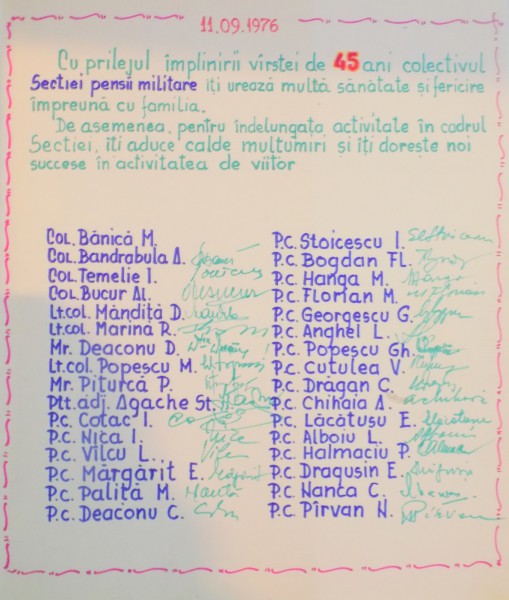 11.09.1976
Cu prilejul împlinirii vîrstei de 45 ani colectivul
Secției pensii militare îți urează multă sănătate și fericire
împreună cu familia.
De asemenea, pentru îndelungata activitate în cadrul
Secției, îți aduce calde mulțumiri și îți dorește noi
succese în activitatea de viitor
Col. Bănică M.
Col. Bandrabula A.
Col. Temelie I.
Col. Bucur Al.
Lt.col. Mândiță D.
Lt.col. Marină R.
Mr. Deaconu D.
Lt.col. Popescu M.
Mr. Piturcă P.
Plt.adj. Agache St.
P.C. Cotac I.
P.C. Nica I.
P.C. Vîlcu L.
P.C. Mărgărit E.
P.C. Paliță M.
P.C. Deaconu C.
P.C. Stoicescu I.
P.C. Bogdan Fl.
P.C. Hanga M.
P.C. Florian M.
P.C. Georgescu G.
P.C. Anghel L.
P.C. Popescu Gh.
P.C. Cutulea V.
P.C. Drăgan C.
P.C. Chihaia A.
P.C. Lăcătușu E.
P.C. Alboiu L.
P.C. Halmaciu P.
P.C. Dragușin E.
P.C. Nanca C.
P.C. Pîrvan N.